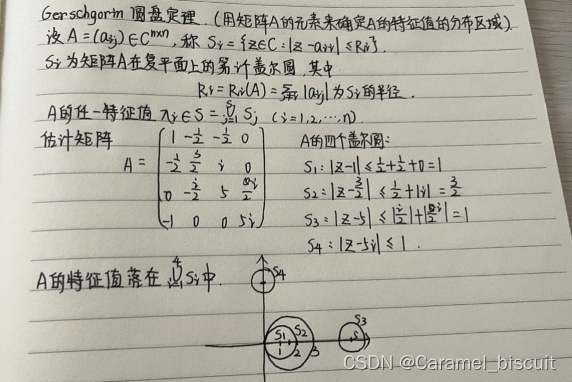 Gerschgorin 圆盘定理.(用矩阵A的元素来确定A的特征值的分布区域).
设 A=(aij)∈C^{n×n},称 Si={z∈C:|z-aii|≤Ri}.
Si为矩阵A在复平面上的第i个盖尔圆,其中
Ri=Ri(A)=∑_{j≠i}|aij|为Si的半径.
A的任一特征值 λi∈S=∪_{j=1}^{n}Sj (i=1,2,…,n).
估计矩阵
A=
1 -1/2 -1/2 0
-1/2 3/2 i 0
0 -i/2 5
-1 0 0 5i
A的四个盖尔圆:
S1:|z-1|≤1/2+1/2+0=1
S2:|z-3/2|≤1/2+|i|=3/2
S3:|z-5|≤|i/2|+ =1
S4:|z-5i|≤1.
A的特征值落在∪_{i=1}^{4}Si中.
S4
S1 S2 S3
1 2 3 5
CSDN @Caramel_biscuit